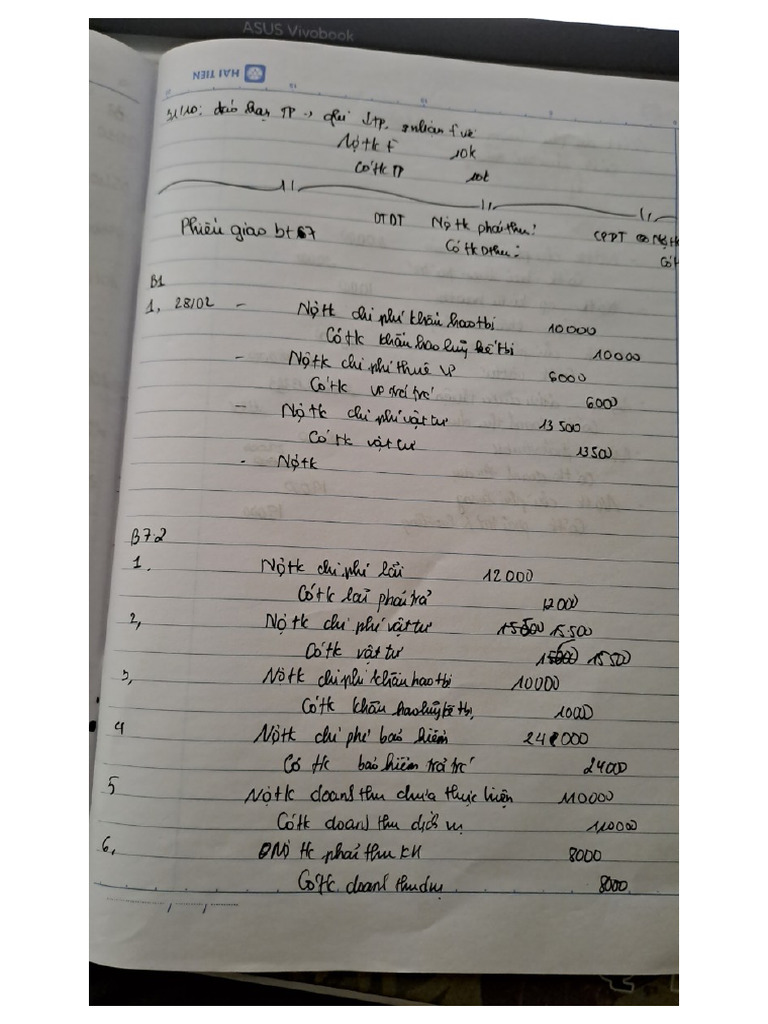 ASUS Vivobook
HẢI TIẾN
31/10: đáo hạn TP → ghi ↓TP. nhận f về
Nợ tk f 10k
Có tk TP 10k
Phiếu giao bt 67
DTDT Nợ tk phải thu:
Có tk Dthu:
CPDT Nợ tk
Có t
B1
1, 28/02 - Nợ tk chi phí khấu hao tbi 10000
Có tk khấu hao luỹ kế tbi 10000
- Nợ tk chi phí thuê VP 6000
Có tk VP trả trc 6000
- Nợ tk chi phí vật tư 13500
Có tk vật tư 13500
- Nợ tk
B7.2
1. Nợ tk chi phí lãi 12000
Có tk lãi phải trả 12000
2, Nợ tk chi phí vật tư 15500
Có tk vật tư 15500
3, Nợ tk chi phí khấu hao tbi 10000
Có tk khấu hao luỹ kế tbị 10000
4 Nợ tk chi phí bảo hiểm 24000
Có tk bảo hiểm trả trc 24000
5 Nợ tk doanh thu chưa thực hiện 110000
Có tk doanh thu dịch vụ 110000
6, Nợ tk phải thu KH 8000
Có tk doanh thu dv 8000